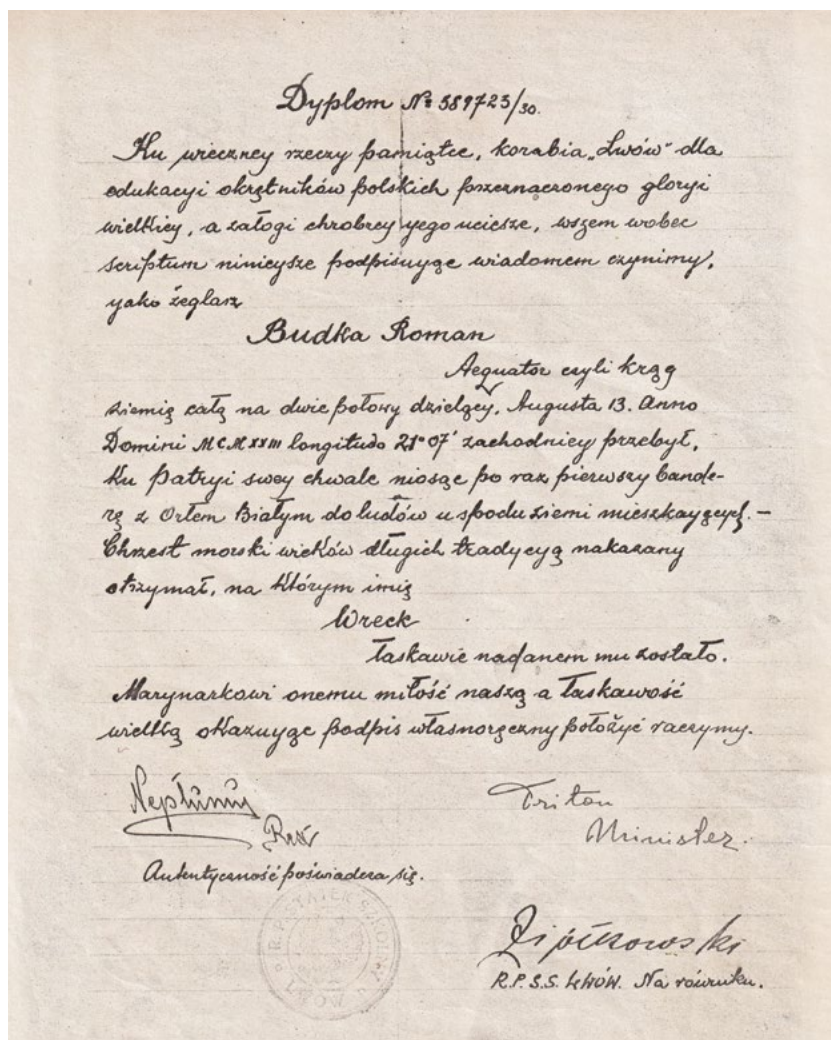 Dyplom № 389723/30.
Ku wieczney rzeczy pamiątce, korabia „Lwów” dla
edukacyi okrętników polskich przeznaczonego gloryi
wielkiey, a załogi chrobrey yego uciesze, wszem wobec
scriptum ninieysze podpisuyąc wiadomem czynimy,
yako żeglarz
Budka Roman
Aequator czyli krąg
ziemię całą na dwie połowy dzielący, Augusta 13. Anno
Domini MCMXXIII longitudo 21°07' zachodniey przebył,
Ku Patryi swey chwale niosąc po raz pierwszy bande-
rę z Orłem Białym do ludów u spodu ziemi mieszkayących. —
Chrzest morski wieków długich tradycyą nakazany
otrzymał, na którym imię
Wreck
łaskawie nadanem mu zostało.
Marynarkowi onemu miłość naszą a łaskawość
wielką okazuyąc podpis własnoręczny położyć raczymy.
Neptunus Triton
Rex Minister.
Autentyczność poświadcza się.
Ziółkowski
R.P.S.S. LWÓW. Na równiku.